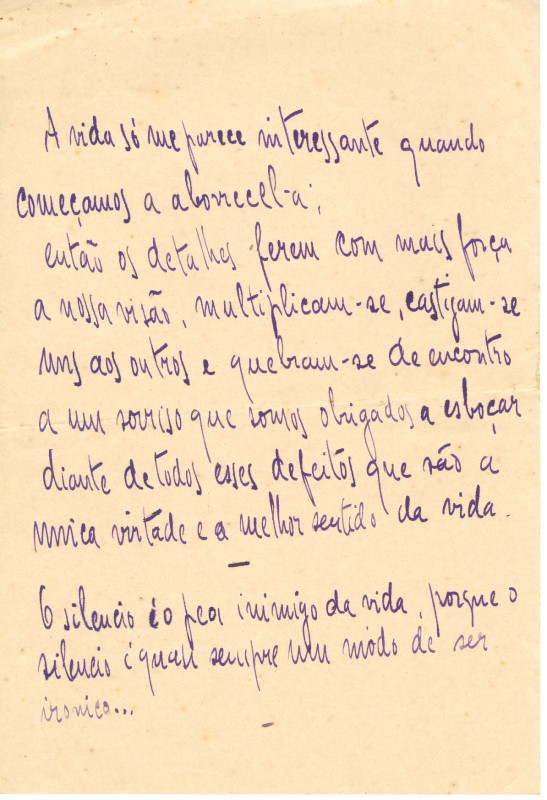 A vida só me parece interessante quando
começamos a aborrecel-a;
então os detalhes ferem com mais força
a nossa visão, multiplicam-se, castigam-se
uns aos outros e quebram-se de encontro
a um sorriso que somos obrigados a esboçar
diante de todos esses defeitos que são a
unica virtade e o melhor sentido da vida.
—
O silencio é o peor inimigo da vida, porque o
silencio é quasi sempre um modo de ser
ironico...
–